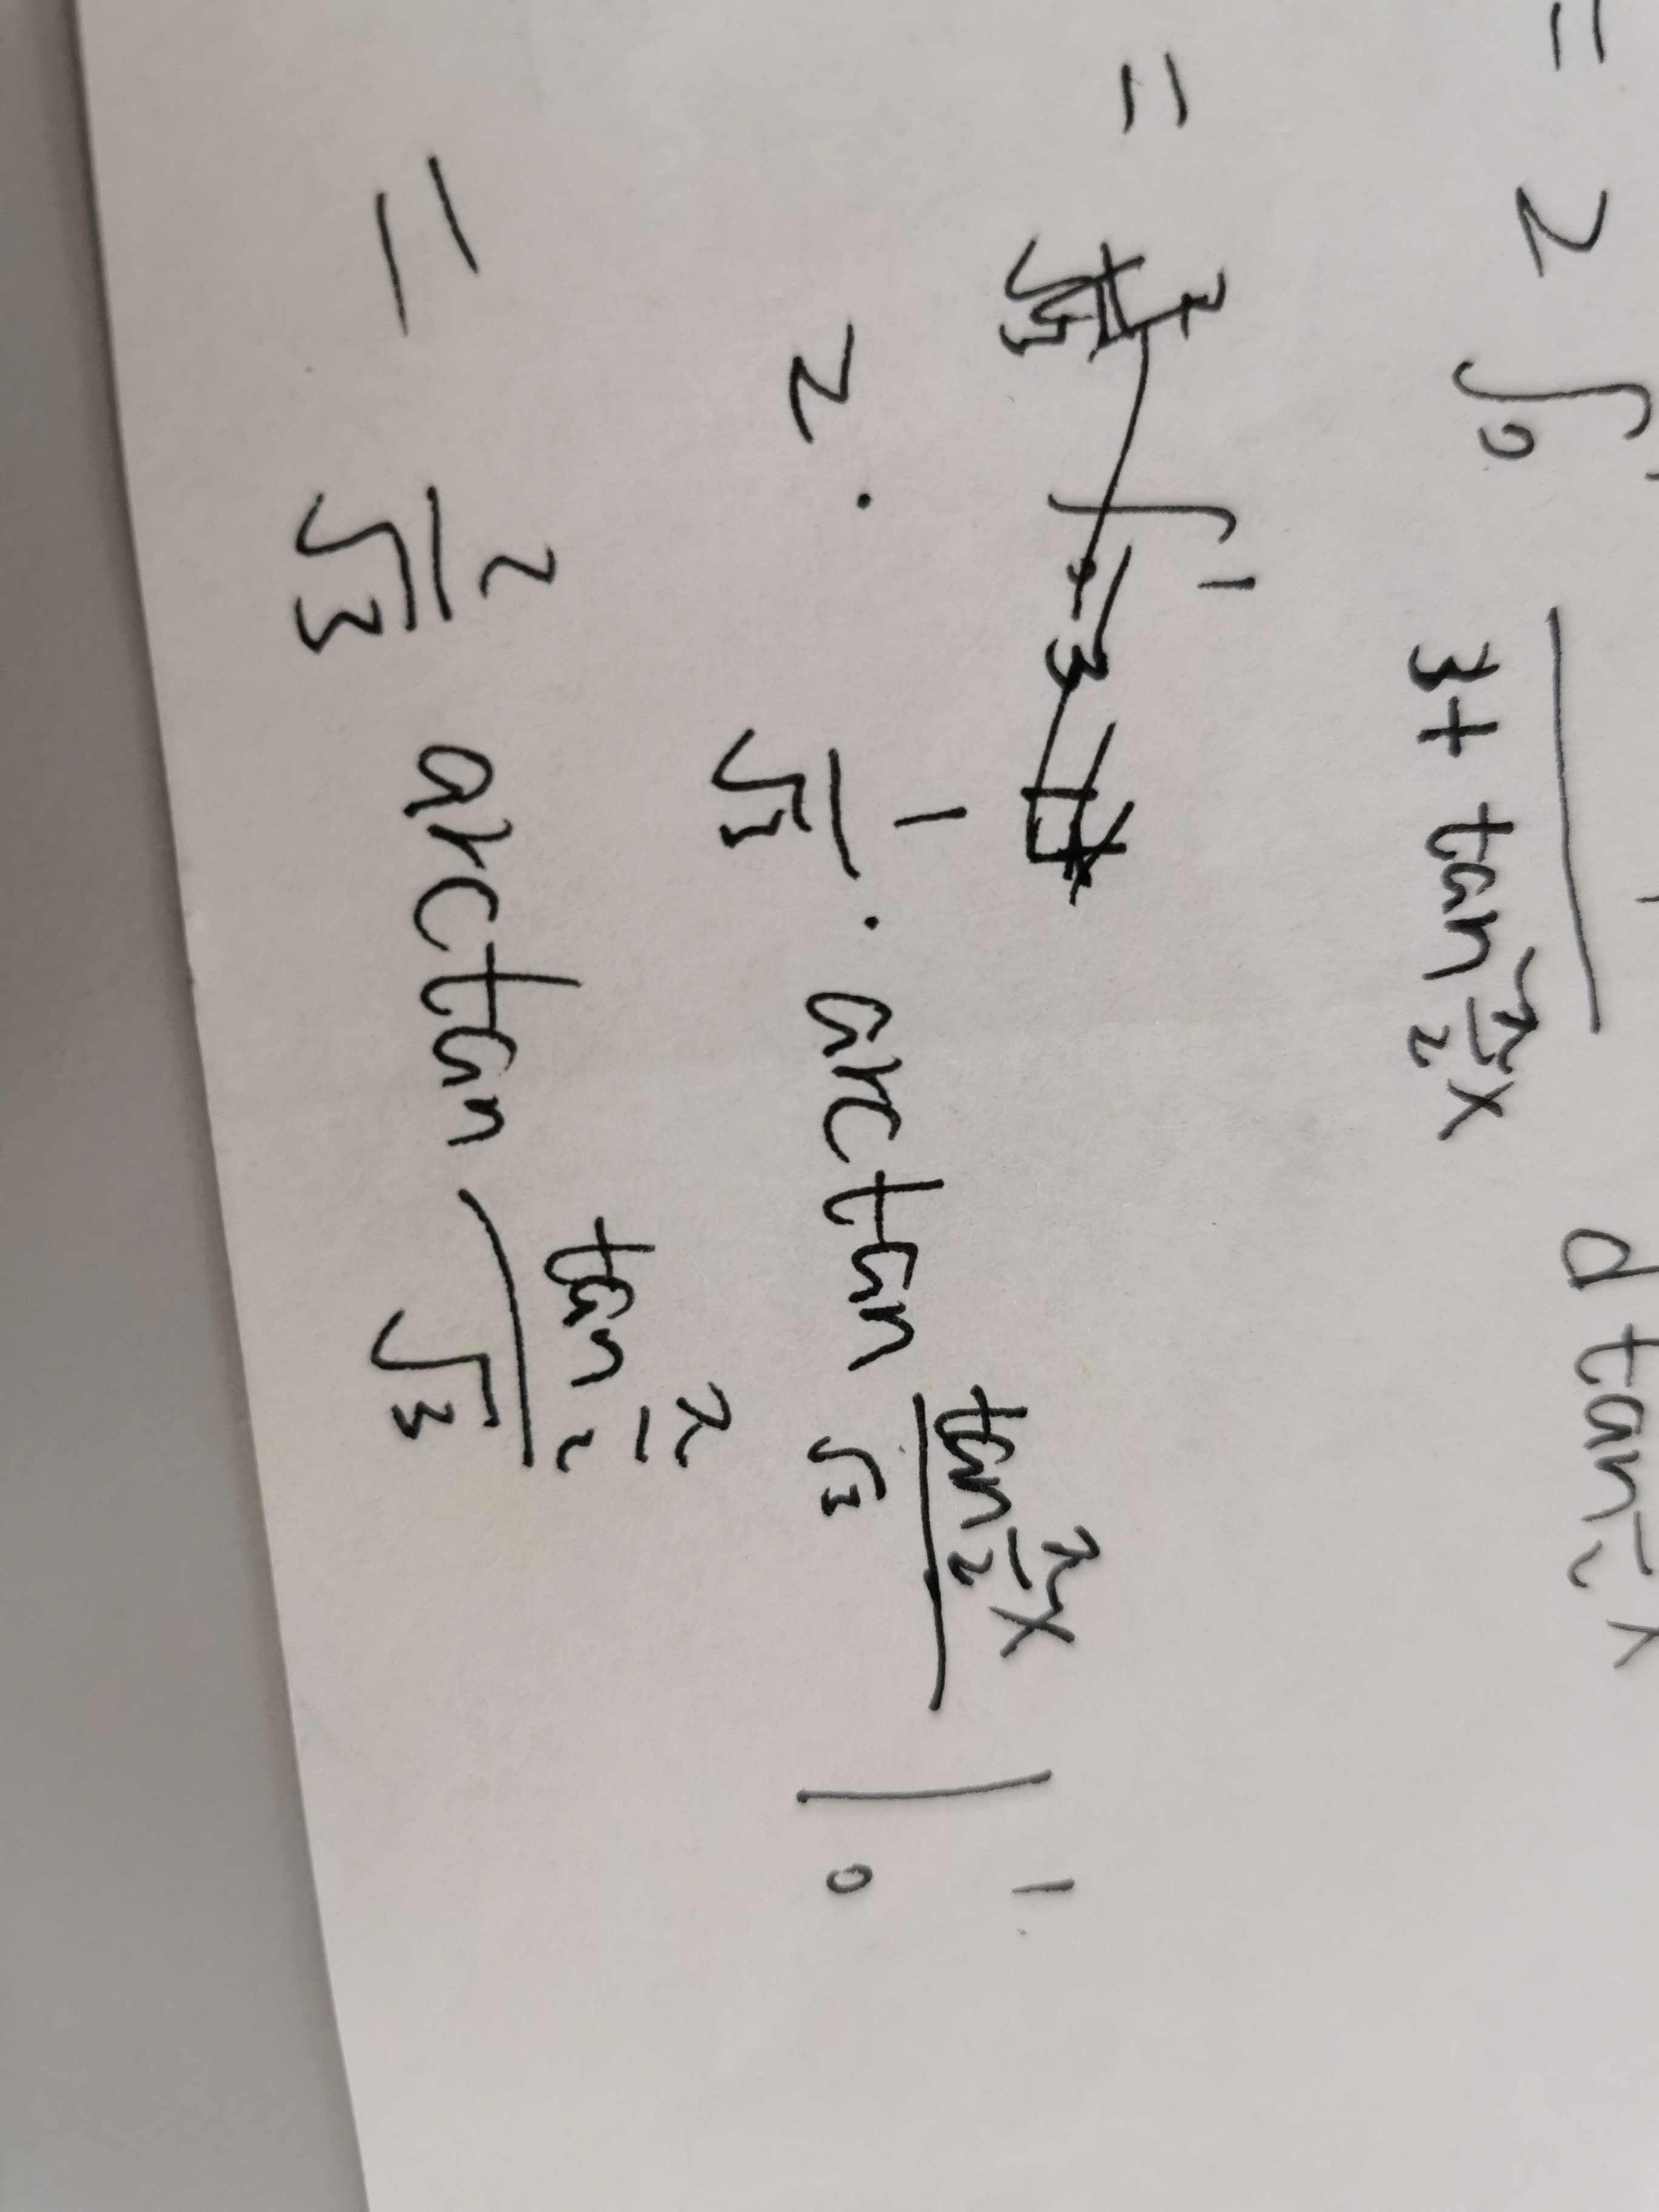 = 2 ∫₀¹ 1/(3 + tan² π/2 x) d tan π/2 x
=
2 · 1/√3 · arctan (tan π/2 x)/√3 |₀¹
= 2/√3 arctan (tan π/2)/√3